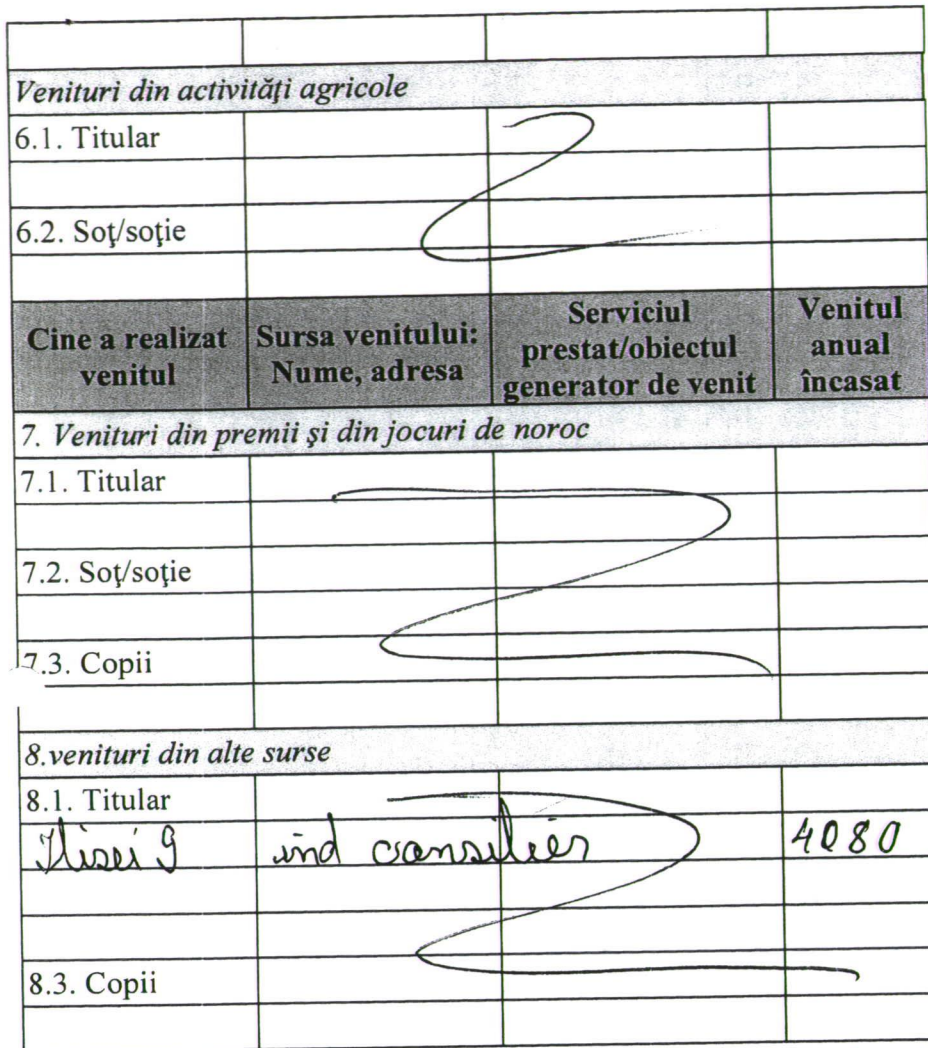 Venituri din activităţi agricole
6.1. Titular
6.2. Soţ/soţie
Cine a realizat venitul Sursa venitului: Nume, adresa Serviciul prestat/obiectul generator de venit Venitul anual încasat
7. Venituri din premii şi din jocuri de noroc
7.1. Titular
7.2. Soţ/soţie
7.3. Copii
8.venituri din alte surse
8.1. Titular
ind consilier 4080
8.3. Copii